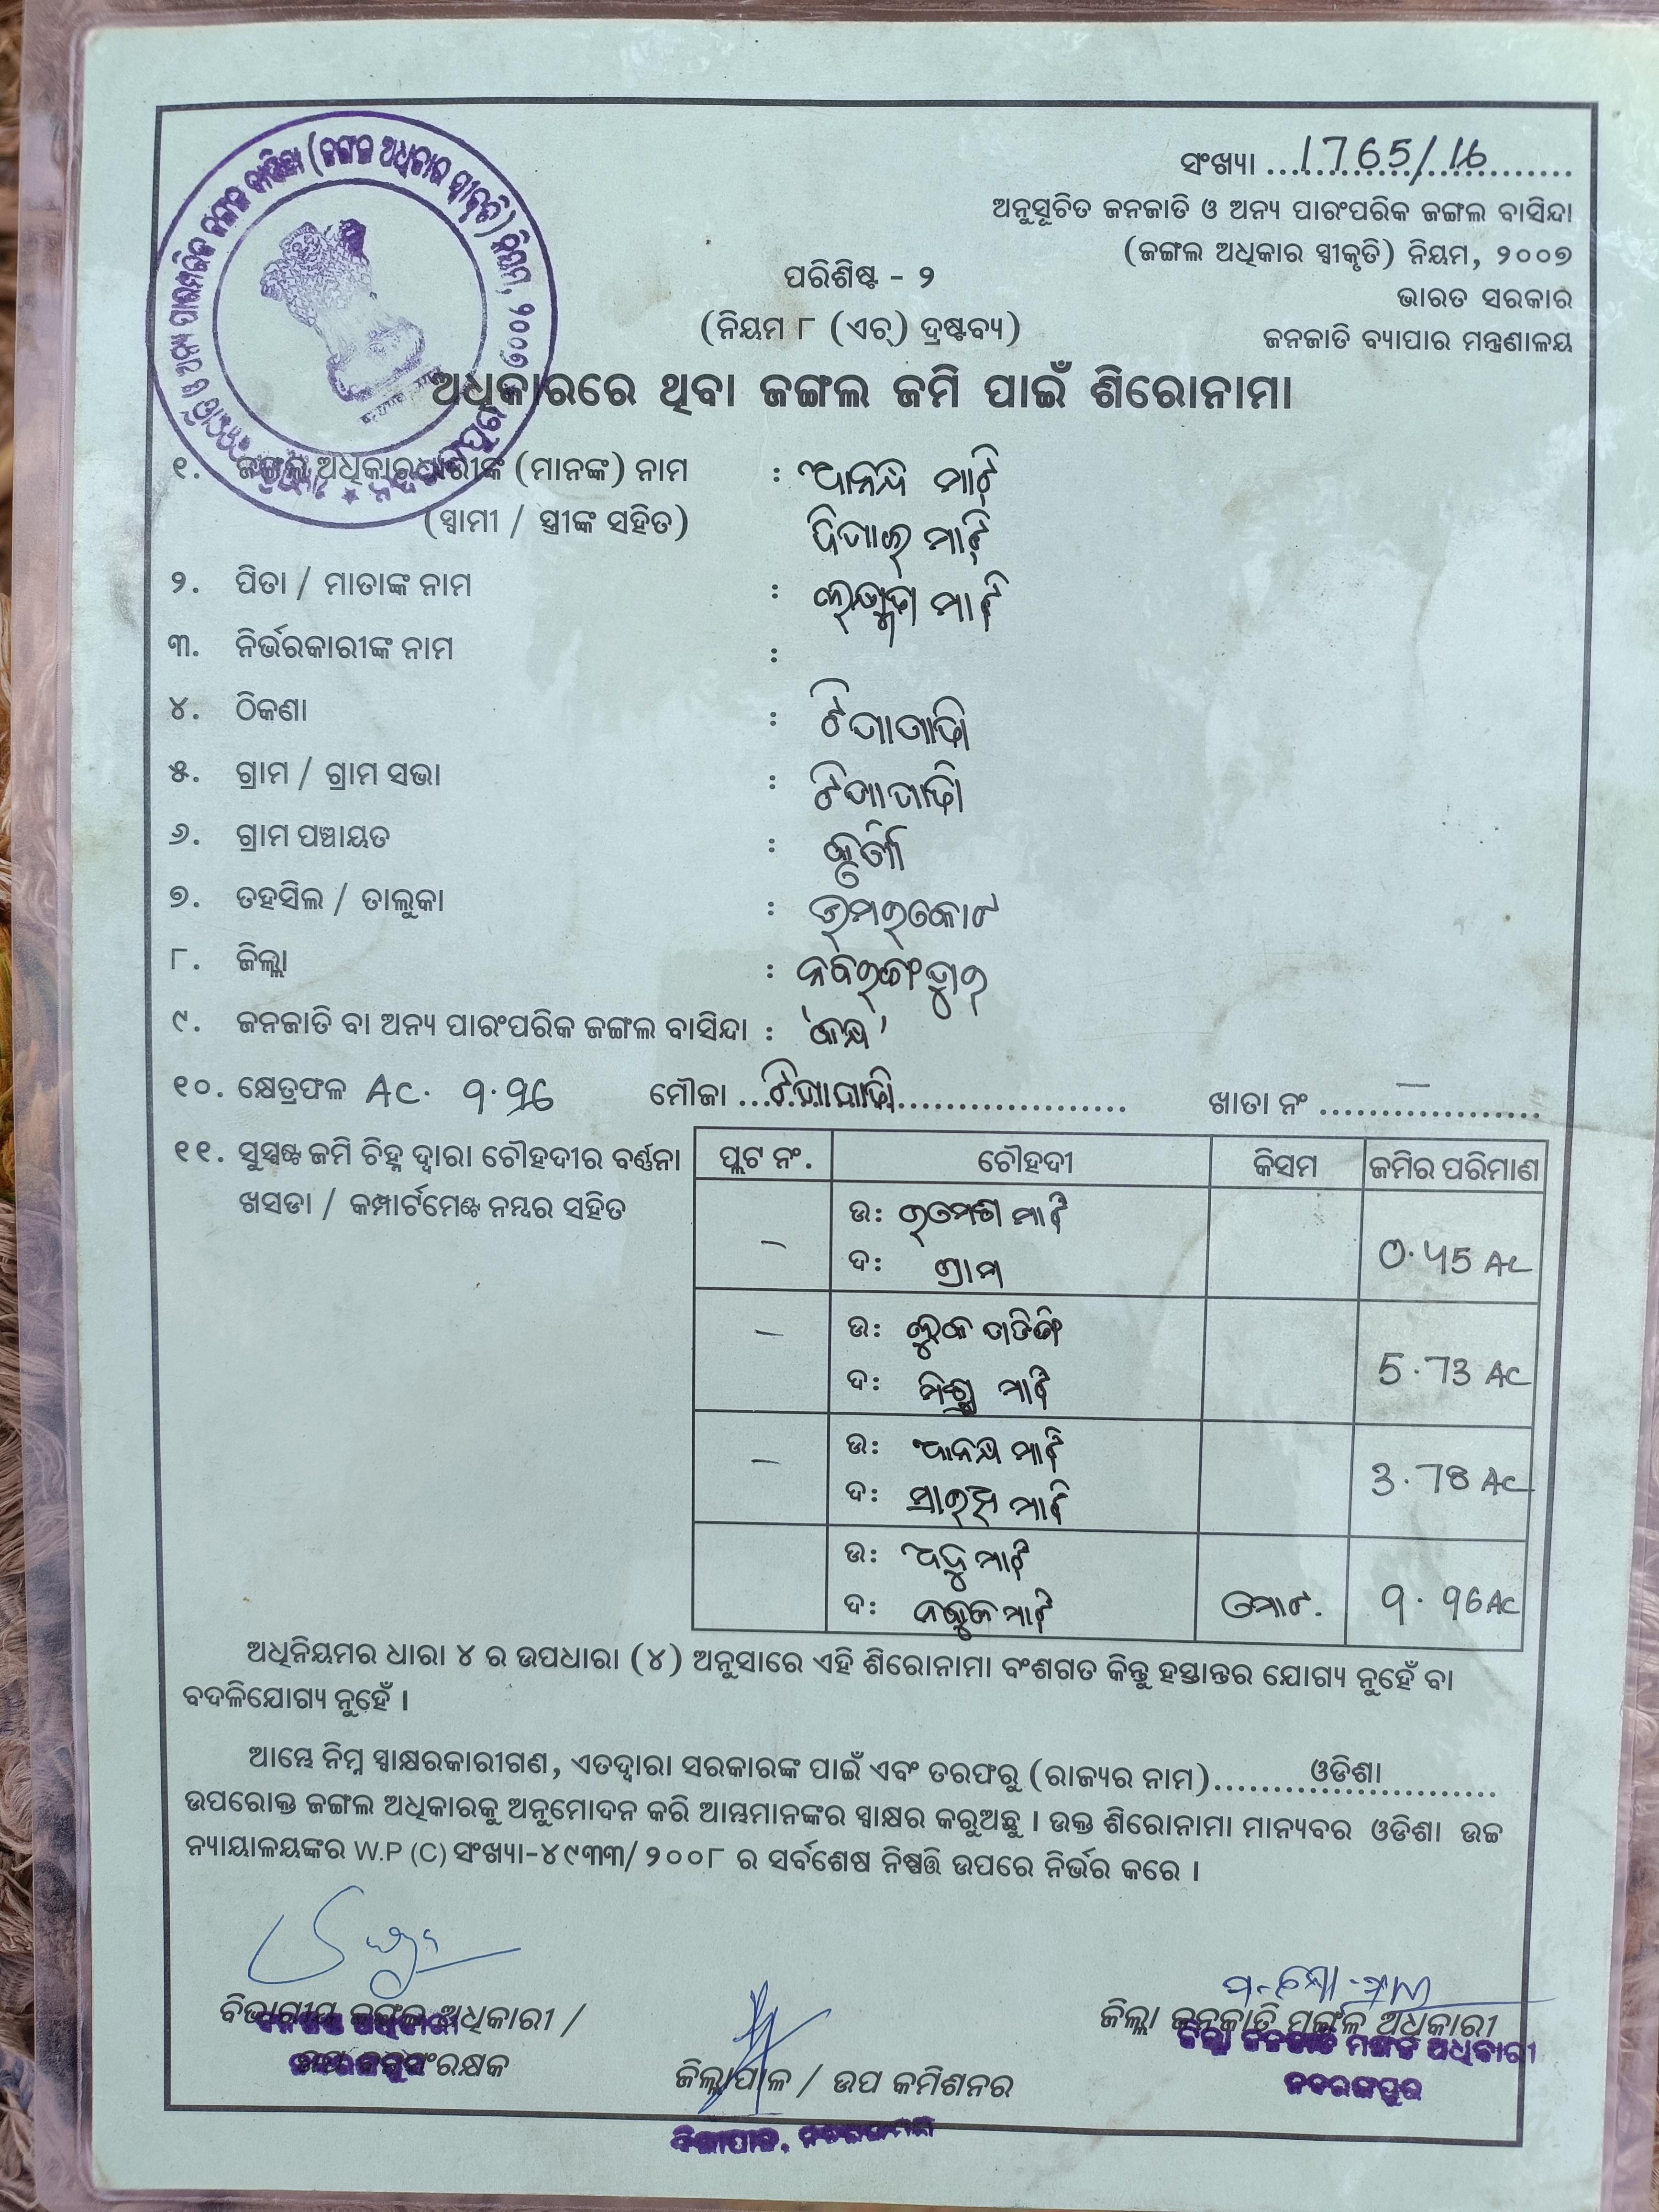 ସଂଖ୍ୟା ....1765/16....
ଅନୁସୂଚିତ ଜନଜାତି ଓ ଅନ୍ୟ ପାରଂପରିକ ଜଙ୍ଗଲ ବାସିନ୍ଦା
(ଜଙ୍ଗଲ ଅଧିକାର ସ୍ୱୀକୃତି) ନିୟମ, ୨୦୦୭
ଭାରତ ସରକାର
ଜନଜାତି ବ୍ୟାପାର ମନ୍ତ୍ରଣାଳୟ
ପରିଶିଷ୍ଟ - ୨
(ନିୟମ ୮ (ଏଚ୍) ଦ୍ରଷ୍ଟବ୍ୟ)
ଅଧିକାରରେ ଥିବା ଜଙ୍ଗଲ ଜମି ପାଇଁ ଶିରୋନାମା
୧. ଜଙ୍ଗଲ ଅଧିକାରଧାରୀଙ୍କ (ମାନଙ୍କ) ନାମ : ଆନନ୍ଦ ମାଝି
(ସ୍ୱାମୀ / ସ୍ତ୍ରୀଙ୍କ ସହିତ) ମାଝି
୨. ପିତା / ମାତାଙ୍କ ନାମ : ମାଝି
୩. ନିର୍ଭରକାରୀଙ୍କ ନାମ :
୪. ଠିକଣା :
୫. ଗ୍ରାମ / ଗ୍ରାମ ସଭା :
୬. ଗ୍ରାମ ପଞ୍ଚାୟତ :
୭. ତହସିଲ / ତାଲୁକା : ଉମରକୋଟ
୮. ଜିଲ୍ଲା : ନବରଙ୍ଗପୁର
୯. ଜନଜାତି ବା ଅନ୍ୟ ପାରଂପରିକ ଜଙ୍ଗଲ ବାସିନ୍ଦା : 'କନ୍ଧ'
୧୦. କ୍ଷେତ୍ରଫଳ AC. 9.96 ମୌଜା ........ ଖାତା ନଂ ....—....
୧୧. ସୁସ୍ପଷ୍ଟ ଜମି ଚିହ୍ନ ଦ୍ୱାରା ଚୌହଦୀର ବର୍ଣ୍ଣନା
ଖସଡା / କମ୍ପାର୍ଟମେଣ୍ଟ ନମ୍ବର ସହିତ
ପ୍ଲଟ ନଂ. ଚୌହଦୀ କିସମ ଜମିର ପରିମାଣ
— ଉ: ମାଝି
ଦ: ଗ୍ରାମ 0.45 AC
— ଉ:
ଦ: ମାଝି 5.73 AC
— ଉ: ଆନନ୍ଦ ମାଝି
ଦ: ମାଝି 3.78 AC
ଉ: ମାଝି
ଦ: ନକୁଳ ମାଝି ମୋଟ. 9.96 AC
ଅଧିନିୟମର ଧାରା ୪ ର ଉପଧାରା (୪) ଅନୁସାରେ ଏହି ଶିରୋନାମା ବଂଶଗତ କିନ୍ତୁ ହସ୍ତାନ୍ତର ଯୋଗ୍ୟ ନୁହେଁ ବା
ବଦଳିଯୋଗ୍ୟ ନୁହେଁ ।
ଆମ୍ଭେ ନିମ୍ନ ସ୍ୱାକ୍ଷରକାରୀଗଣ, ଏତଦ୍ୱାରା ସରକାରଙ୍କ ପାଇଁ ଏବଂ ତରଫରୁ (ରାଜ୍ୟର ନାମ)........ଓଡିଶା........
ଉପରୋକ୍ତ ଜଙ୍ଗଲ ଅଧିକାରକୁ ଅନୁମୋଦନ କରି ଆମ୍ଭମାନଙ୍କର ସ୍ୱାକ୍ଷର କରୁଅଛୁ । ଉକ୍ତ ଶିରୋନାମା ମାନ୍ୟବର ଓଡିଶା ଉଚ୍ଚ
ନ୍ୟାୟାଳୟଙ୍କର W.P (C) ସଂଖ୍ୟା-୪୯୩୩/ ୨୦୦୮ ର ସର୍ବଶେଷ ନିଷ୍ପତ୍ତି ଉପରେ ନିର୍ଭର କରେ ।
ବିଭାଗୀୟ ଜଙ୍ଗଲ ଅଧିକାରୀ /
ସଂରକ୍ଷକ
ଜିଲ୍ଲାପାଳ / ଉପ କମିଶନର
ଜିଲ୍ଲା ଜନଜାତି ମଙ୍ଗଳ ଅଧିକାରୀ
ଜିଲ୍ଲା ଜନଜାତି ମଙ୍ଗଳ ଅଧିକାରୀ
ନବରଙ୍ଗପୁର